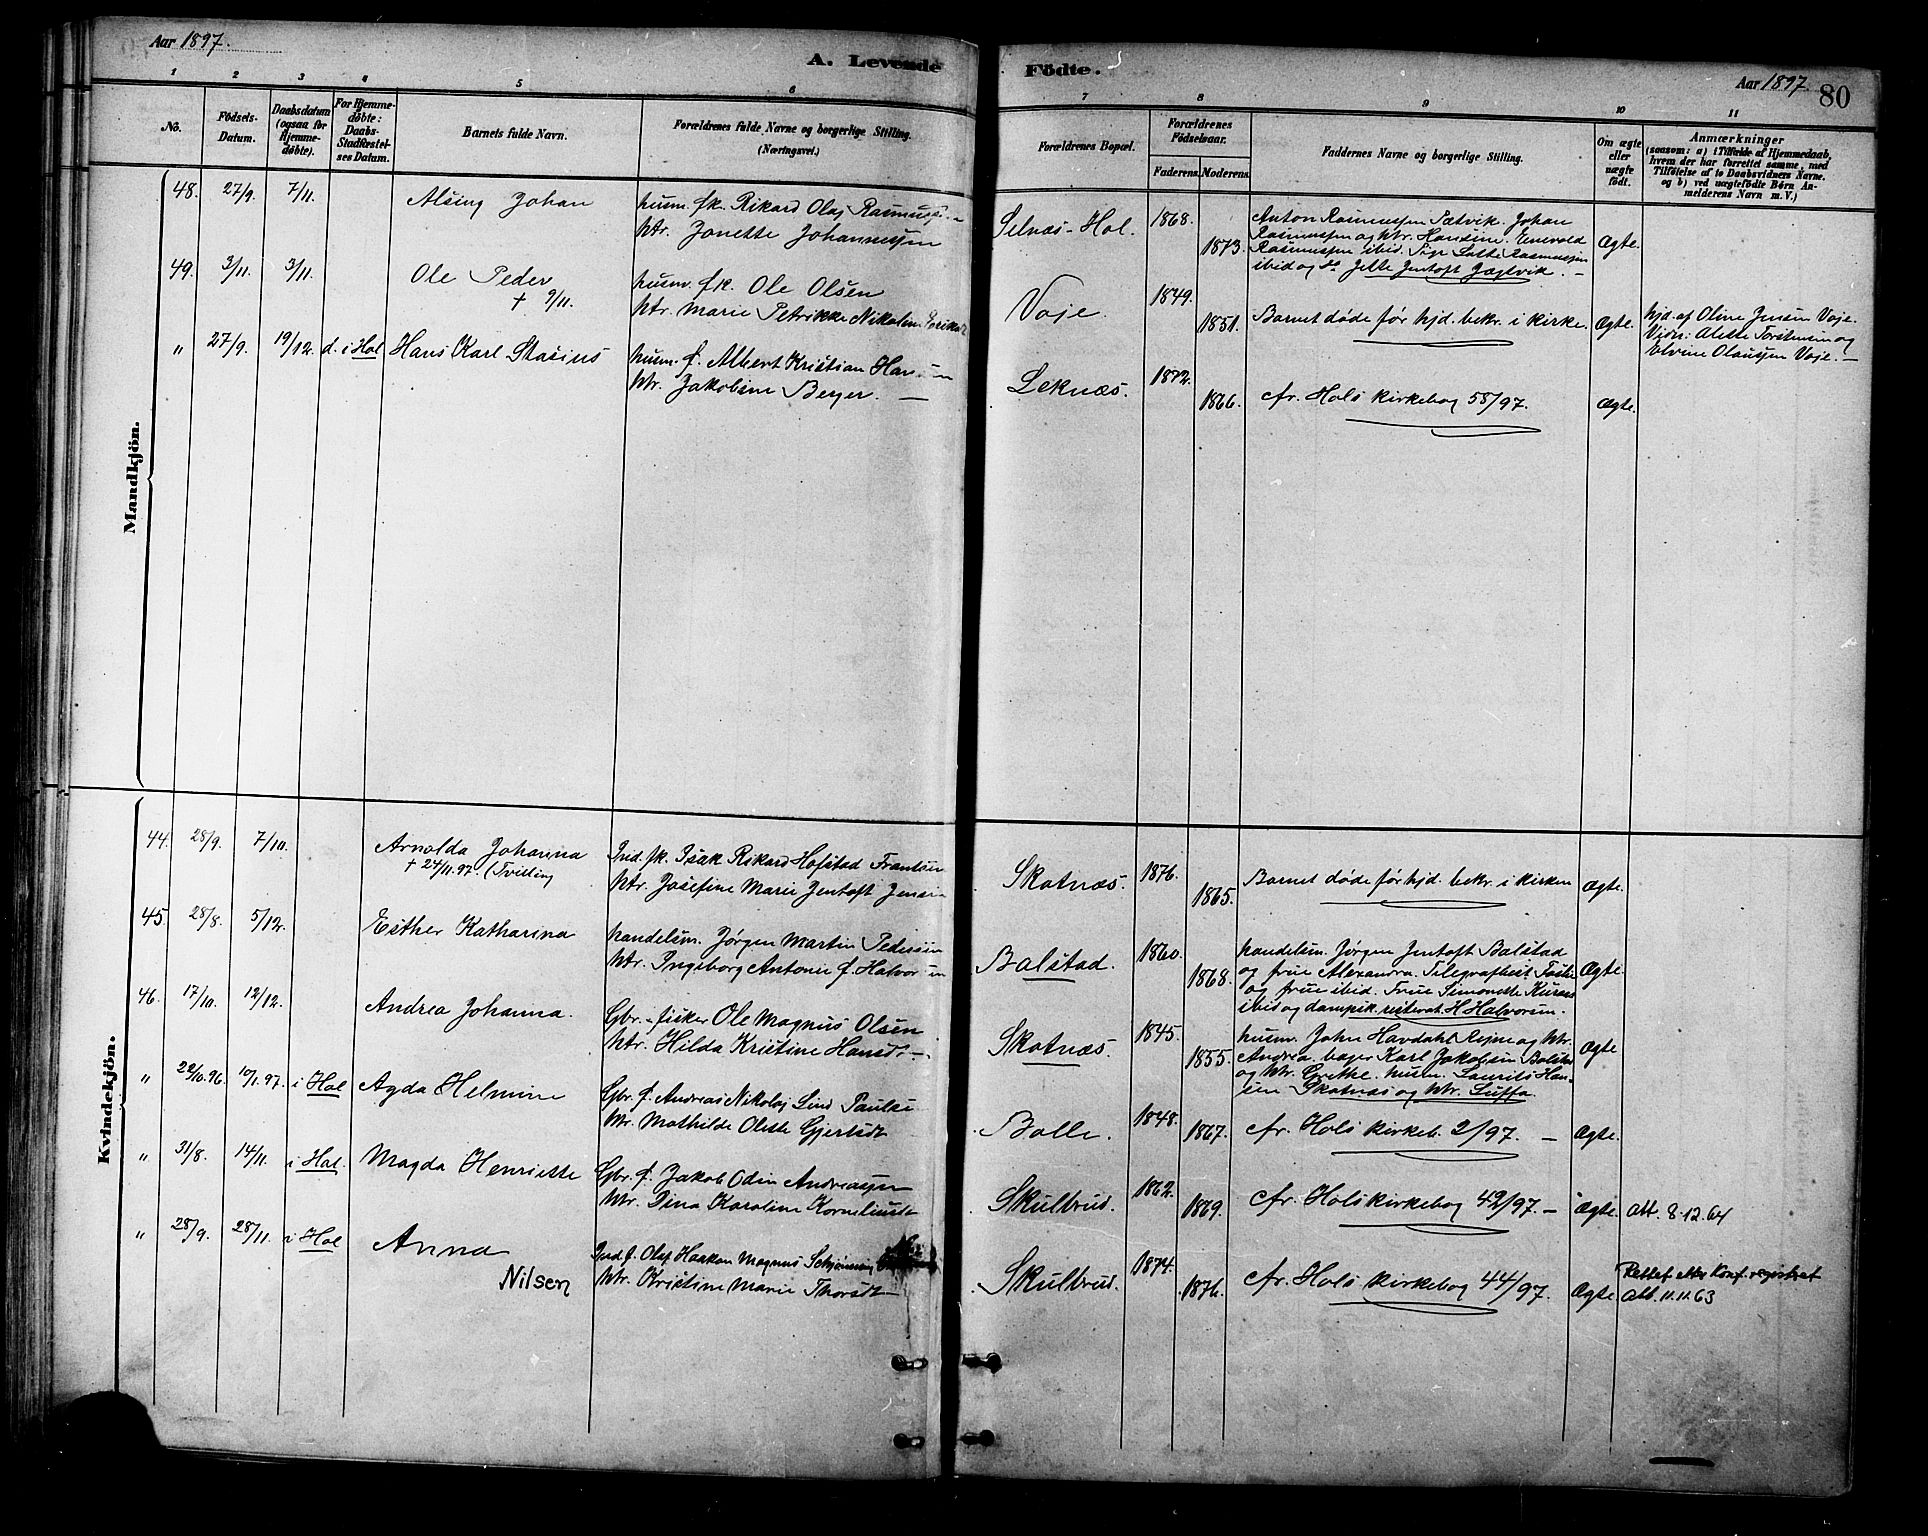 Aar 1897.
A. Levende Födte.
Aar 1897.
80
1 2 3 4 5 6 7 8 9 10 11
No.
Födsels-Datum.
Daabsdatum (ogsaa for Hjemme-döbte).
For Hjemme-döbte: Daabs-Stadfæstel-ses Datum.
Barnets fulde Navn.
Forældrenes fulde Navne og borgerlige Stilling.
(Næringsvei.)
Forældrenes Bopæl.
Forældrenes Födselsaar.
Faderens. Moderens.
Faddernes Navne og borgerlige Stilling.
Om ægte eller uægte födt.
Anmærkninger
(saasom: a) i Tilfælde af Hjemmedaab,
hvem der har forrettet samme, med
Tilföielse af to Daabsvidners Navne.
og b) ved uægtefödte Börn An-
melderens Navn m. V.)
Mandkjön.
48. 27/9. 7/11. Alsing Johan
husm. fk. Rikard Olaj Rasmuss
htr. Janette Johannessen
Selnæs-Hol. 1868. 1873.
Anton Rasmussen Petvik. Johan
Rasmussen og htr. Hansine. Enevold
Rasmussen ibid.
ibid og do Jette Jentoft Jægtvik. -
Ægte.
49. 3/11. 3/11. Ole Peder
+ 9/11.
husm. fk. Ole Olsen
htr. Marie Petrikke Nikoline
Voje. 1849. 1851.
Barnet døde før hjd. bekr. i kirke.
Ægte.
hjd. af Oline Jensen Voje.
Vidn: Alette Torstensen og
Elvine Olaussen Voje. -
" 27/9. 19/12. d. i Hol Hans Karl Stasius
husm. f. Albert Kristian Han
htr. Jakobine Berger. -
Leknæs. 1872. 1866.
cfr. Hols kirkebog 58/97.
Ægte.
Kvindekjön.
44. 28/9. 7/10. Arnolda Johanna
+ 24/11.97. (Tvilling
Ind. fk. Isak Rikard Hofstad Frantsen
htr. Josefine Marie Jentoft Jensen
Skotnæs. 1876. 1865.
Barnet døde før hjd. bekr. i kirken
Ægte.
45. 28/8. 5/12. Esther Katharina
handelsm. Jørgen Martin Pedersen
htr. Ingeborg Antonie f. Halvor
Balstad. 1860. 1868.
handelsm. Jørgen Jentoft Balstad
og frue Alexandra. Telegrafbest.
og frue ibid. Frue Simonette
ibid og dampsk. H Halvorsen.
Ægte.
46. 17/10. 12/12. Andrea Johanna.
Gbr. - fisker Ole Magnus Olsen
htr. Hilda Kristine Hansdt -
Skotnæs. 1845. 1855.
husm. John Havdahl Reine og htr.
Andrea. bager Karl Jakobsen Balstad
og htr. Grethe. husm. Laurits Han-
sen Skotnæs og htr.
Ægte
" 22/10.96. 10/1.97. i Hol Agda Helmine
Gbr. f. Andreas Nikolaj Lind Paulse
htr. Mathilde Olette Gjertsdt
Bolle. 1848. 1867.
cfr. Hols kirkeb. 2/97. -
Ægte.
" 31/8. 14/11. i Hol. Magda Henriette
Gbr. f. Jakob Odin Andreassen
htr. Dina Karoline Korneliusdt
Skulbrud. 1862. 1869.
cfr. Hols kirkebog 42/97. -
Ægte.
Att. 8.12.64
" 28/9. 28/11. i Hol Anna
Nilsen
Ind. f. Olaf Haakon Magnus Schjønning
htr. Kristine Marie Thorsdt
Skulbrud. 1874. 1876.
cfr. Hols kirkebog 44/97.
Ægte
Rettet etter Konf. registret
Att. 11.11.63